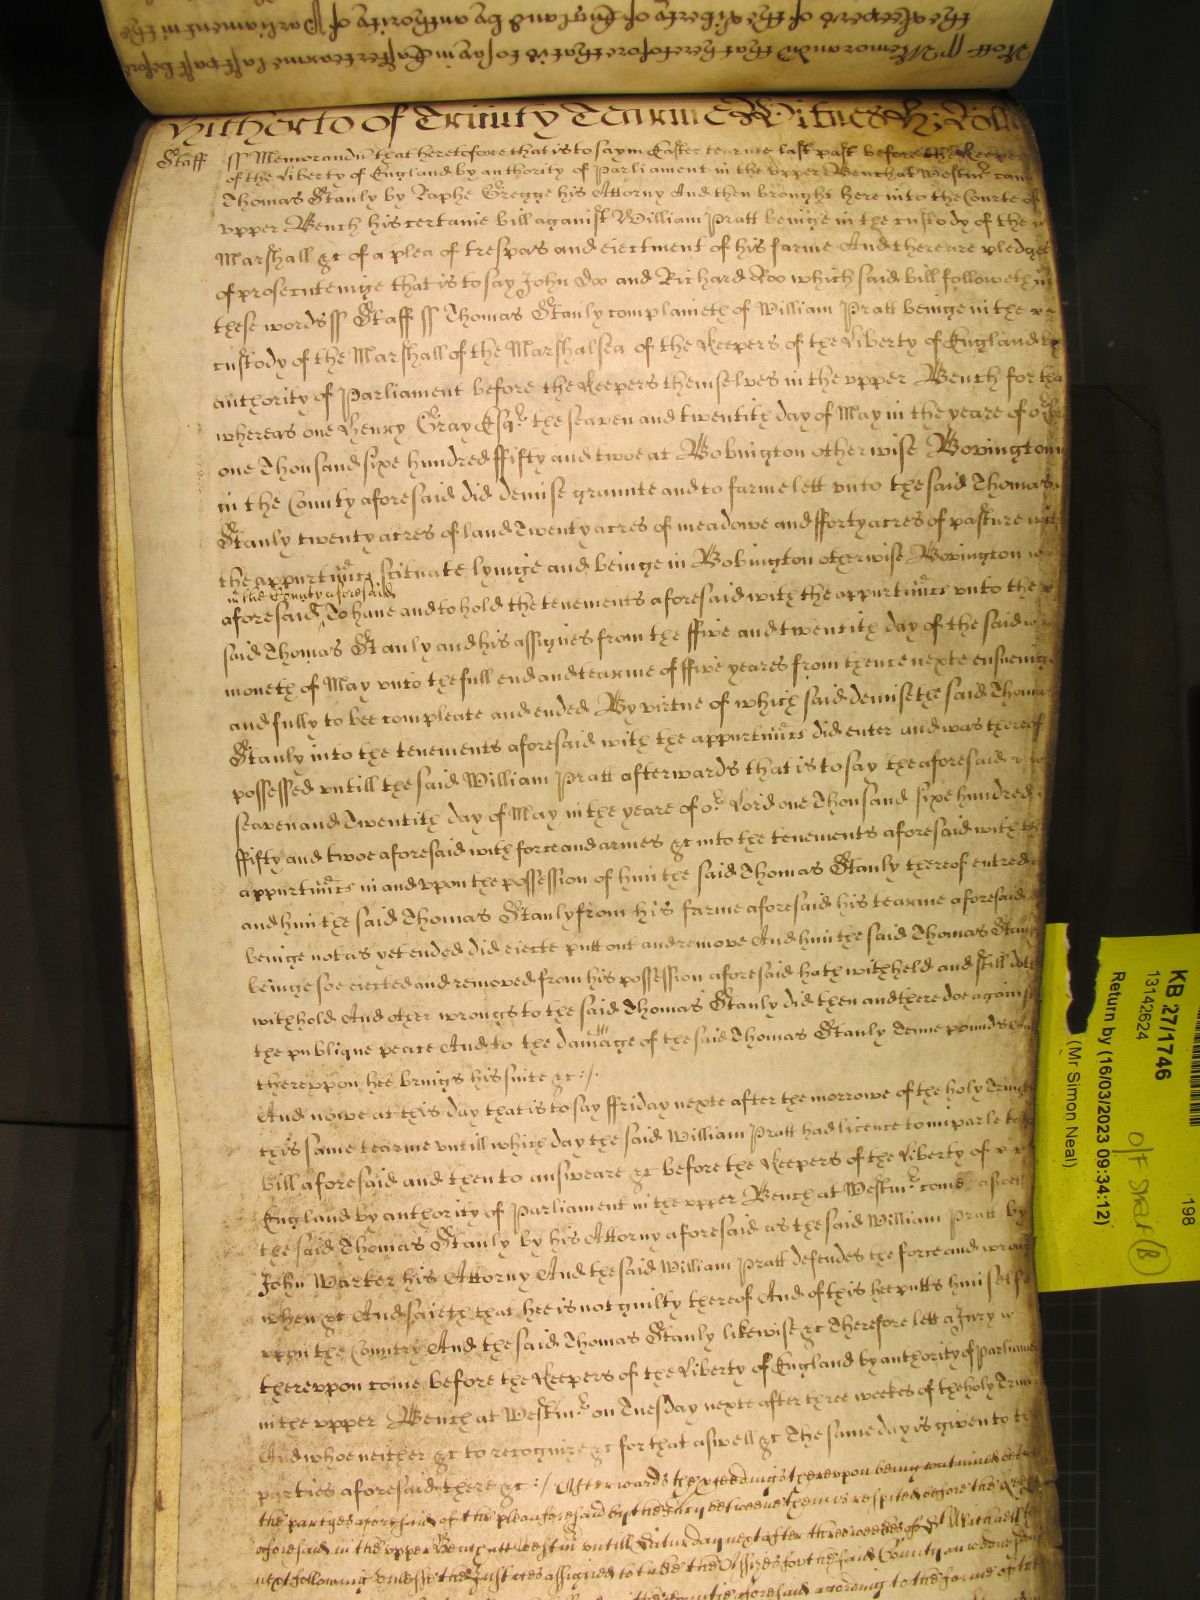 the Keepers of the Liberty of England by authority of Parliament in the
Staff ss Memorand that heretofore that is to say in Easter tearme last past before
Hitherto of Trinity Tearme Witnes H: Rolle
Staff ss Memorandu that heretofore that is to say in Easter tearme last past before the Keepers
of the Liberty of England by authority of Parliament in the upper Bench at Westmr came
Thomas Stanly by Raphe Gregge his Attorny And then brought here into the Courte of
upper Bench his certaine bill against William Pratt beinge in the custody of the
Marshall &c of a plea of trespas and eiectment of his farme And there are pledges
of prosecuteinge that is to say John Doo and Richard Roo which said bill followeth in
these words ss Staff ss Thomas Stanly complaineth of William Pratt beinge in the
custody of the Marshall of the Marshalsea of the Keepers of the Liberty of England by
authority of Parliament before the Keepers themselves in the upper Bench for that
whereas one Henry Gray Esqr the seaven and twentith day of May in the yeare of or
one Thousand sixe hundred ffifty and twoe at Bobington otherwise Bovington
in the County aforesaid did demise graunte and to farme lett unto the said Thomas
Stanly twenty acres of land Twenty acres of meadowe and fforty acres of pasture with
the appurtnncs scituate lyinge and beinge in Bobington otherwise Bovington
in the County aforesaid
aforesaid To have and to hold the tenements aforesaid with the appurtnncs unto the
said Thomas Stanly and his assignes from the ffive and twentith day of the said
moneth of May unto the full end and tearme of ffive yeares from thence nexte ensueinge
and fully to bee compleate and ended By virtue of which said demise the said Thomas
Stanly into the tenements aforesaid with the appurtnncs did enter and was thereof
possessed untill the said William Pratt afterwards that is to say the aforesaid
seaven and Twentith day of May in the yeare of or Lord one Thousand sixe hundred
ffifty and twoe aforesaid with force and armes &c into the tenements aforesaid with the
appurtnncs in and upon the possession of him the said Thomas Stanly thereof entred
and him the said Thomas Stanly from his farme aforesaid his tearme aforesaid
beinge not as yet ended did eiecte putt out and remove And him the said Thomas Stanly
beinge soe eiected and removed from his possession aforesaid hath withheld and still doth
withhold And other wrongs to the said Thomas Stanly did then and there doe against
the publique peace And to the damage of the said Thomas Stanly Tenne pounds And
thereupon hee brings his suite &c :/.
And nowe at this day that is to say ffriday nexte after the morrowe of the holy Trinity
this same tearme untill which day the said William Pratt had licence to imparle to the
bill aforesaid and then to answeare &c before the Keepers of the Liberty of
England by authority of Parliament in the upper Bench at Westmr come aswell
the said Thomas Stanly by his Attorny aforesaid as the said William Pratt by
John Warter his Attorny And the said William Pratt defendes the force and wrong
when &c And saieth that hee is not guilty thereof And of this hee putts himselfe
upon the Country And the said Thomas Stanly likewise &c Therefore lett a Jury
thereupon come before the Keepers of the Liberty of England by authority of Parliament
in the upper Bench at Westmr on Tuesday nexte after three weekes of the holy Trinity
And whoe neither &c to recognize &c for that aswell &c The same day is given to the
parties aforesaid there &c :/ Afterwards the proceedings thereupon being continued betweene
the partyes aforesaid of the plea aforesaid by the Jury betweene them is respited before the Keepers
aforesaid in the upper Bench att Westmr untill Saturday next after three weekes of St Michaell
next following unlesse the Justices assigned to take the Assizes for the said County on wednesday
in the countie aforesaid according to the forme of the
KB 27/1746
13142624
Return by (16/03/2023 09:34:12)
(Mr Simon Neal)
198